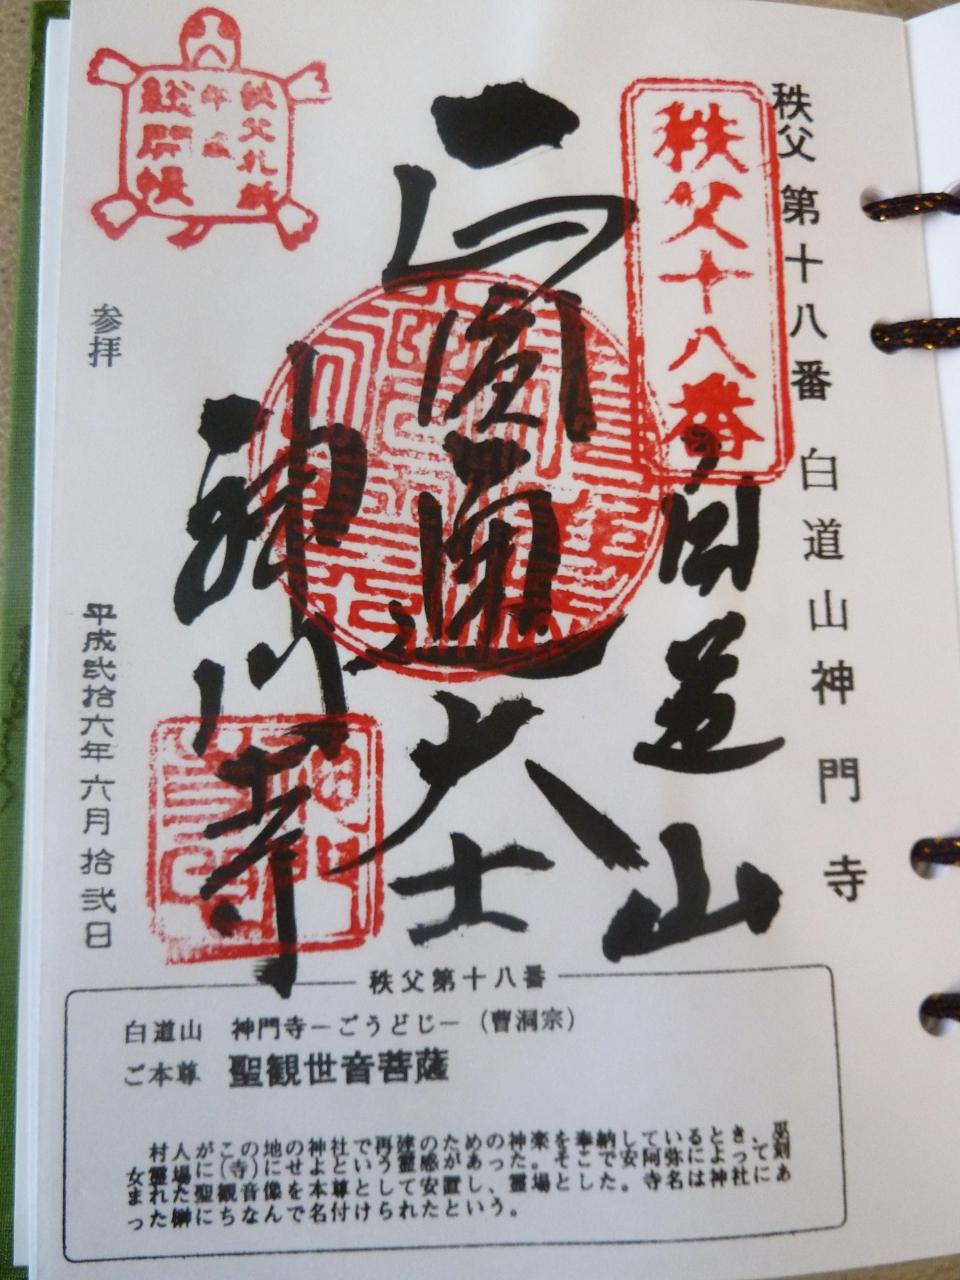 秩父第十八番 白道山神門寺
秩父十八番
白道山
正圓通大士
神門寺
参拝
平成弐拾六年六月拾弐日
秩父第十八番
白道山 神門寺－ごうどじ－（曹洞宗）
ご本尊 聖観世音菩薩
村人がこの地の神社で再建のための神楽を奉納しているとき、巫
女霊場に(寺)にせよという霊感があった。そこで安阿弥によって刻
まれた聖観音像を本尊として安置し、霊場とした。寺名は神社にあ
った榊にちなんで名付けられたという。